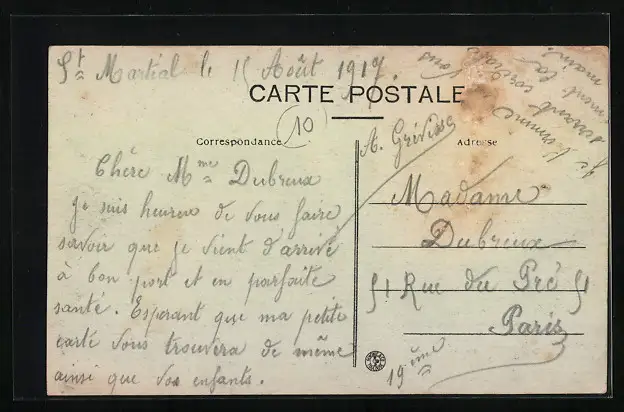 St Martial le 15 Août 1917.
CARTE POSTALE
10
Correspondance
Adresse
Chère Mme Dubreux
je suis heureu de vous faire
savoir que je vient d'arrivé
à bon port et en parfaite
santé. Esperant que ma petite
carte vous trouvera de même
ainsi que vos enfants.
A. Grévisse
Madame
Dubreux
51 Rue du Pré 51
Paris
19ème
Je termine
serrant
ment la
main.
vous